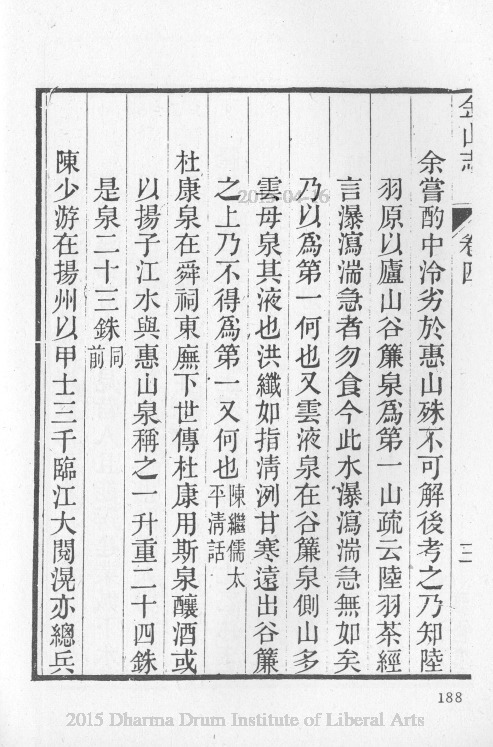 金山志 卷四 三
余嘗酌中泠劣於惠山殊不可解後考之乃知陸
羽原以廬山谷簾泉為第一山疏云陸羽茶經
言瀑瀉湍急者勿食今此水瀑瀉湍急無如矣
乃以為第一何也又雲液泉在谷簾泉側山多
雲母泉其液也洪纖如指清洌甘寒遠出谷簾
之上乃不得為第一又何也陳繼儒太平清話
杜康泉在舜祠東廡下世傳杜康用斯泉釀酒或
以揚子江水與惠山泉稱之一升重二十四銖
是泉二十三銖同前
陳少游在揚州以甲士三千臨江大閱滉亦總兵
188
2015 Dharma Drum Institute of Liberal Arts